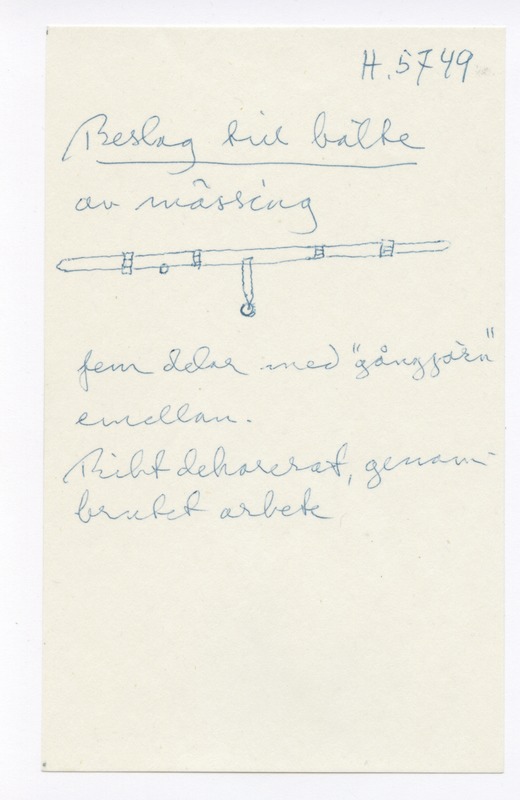 H. 5749
Beslag till bälte
av mässing
fem delar med "gångjärn"
emellan.
Rikt dekorerat, genom-
brutet arbete